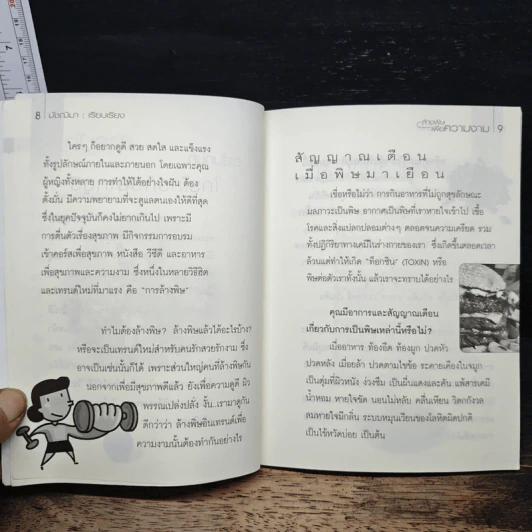 8 มัชฌิมา : เรียบเรียง
ใครๆ ก็อยากดูดี สวย สดใส และแข็งแรง
ทั้งรูปลักษณ์ภายในและภายนอก โดยเฉพาะคุณ
ผู้หญิงทั้งหลาย การทำให้ได้อย่างใจฝัน ต้อง
ตั้งมั่น มีความพยายามที่จะดูแลตนเองให้ดีที่สุด
ซึ่งในยุคปัจจุบันก็คงไม่ยากเกินไป เพราะมี
การตื่นตัวเรื่องสุขภาพ มีกิจกรรมการอบรม
เข้าคอร์สเพื่อสุขภาพ หนังสือ วิธีดี และอาหาร
เพื่อสุขภาพและความงาม ซึ่งหนึ่งในหลายวิธีฮิต
และเทรนด์ใหม่ที่มาแรง คือ "การล้างพิษ"
ทำไมต้องล้างพิษ? ล้างพิษแล้วได้อะไรบ้าง?
หรือจะเป็นเทรนด์ใหม่สำหรับคนรักสวยรักงาม ซึ่ง
อาจเป็นเช่นนั้นก็ได้ เพราะส่วนใหญ่คนที่ล้างพิษกัน
นอกจากเพื่อมีสุขภาพดีแล้ว ยังเพื่อความดูดี ผิว
พรรณเปล่งปลั่ง งั้น..เรามาดูกัน
ดีกว่าว่า ล้างพิษอินเทรนด์เพื่อ
ความงามนั้นต้องทำกันอย่างไร
ล้างพิษ
เพื่อความงาม 9
สัญญาณเตือน
เมื่อพิษมาเยือน
เชื่อหรือไม่ว่า การกินอาหารที่ไม่ถูกสุขลักษณะ
มลภาวะเป็นพิษ อากาศเป็นพิษที่เราหายใจเข้าไป เชื้อ
โรคและสิ่งแปลกปลอมต่างๆ ตลอดจนความเครียด รวม
ทั้งปฏิกิริยาทางเคมีในร่างกายของเรา ซึ่งเกิดขึ้นตลอดเวลา
ล้วนแต่ทำให้เกิด "ท็อกซิน" (TOXIN) หรือ
พิษต่อตัวเราทั้งนั้น แล้วเราจะทราบได้อย่างไร
คุณมีอาการและสัญญาณเตือน
เกี่ยวกับการเป็นพิษเหล่านี้หรือไม่?
เบื่ออาหาร ท้องอืด ท้องผูก ปวดหัว
ปวดหลัง เมื่อยล้า ปวดตามไขข้อ ระคายเคืองในจมูก
เป็นตุ่มที่ผิวหนัง ง่วงซึม เป็นผื่นแดงและคัน แพ้สารเคมี
น้ำหอม หายใจขัด นอนไม่หลับ คลื่นเหียน วิตกกังวล
ลมหายใจมีกลิ่น ระบบหมุนเวียนของโลหิตผิดปกติ
เป็นไข้หวัดบ่อย เป็นต้น